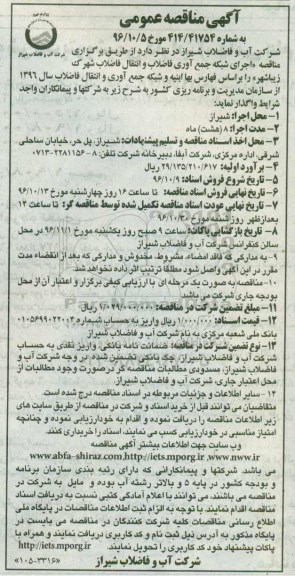 آگهی مناقصه عمومی
به شماره ۴۱۴/۴۱۷۵۴ مورخ ۹۶/۱۰/۵
شرکت آب و فاضلاب شیراز
شرکت آب و فاضلاب شیراز در نظر دارد از طریق برگزاری
مناقصه «اجرای شبکه جمع آوری فاضلاب و انتقال فاضلاب شهرک
زیباشهر» را براساس فهارس بها ابنیه و شبکه جمع آوری و انتقال فاضلاب سال ۱۳۹۶
از سازمان مدیریت و برنامه ریزی کشور به شرح زیر به شرکتها و پیمانکاران واجد
شرایط واگذار نماید:
۱- محل اجرا: شیراز
۲- مدت اجرا: ۸ (هشت) ماه
۳- محل اخذ اسناد مناقصه و تسلیم پیشنهادات: شیراز، پل حر، خیابان ساحلی
شرقی، اداره مرکزی، شرکت آبفا، دبیرخانه شرکت تلفن: ۸-۲۲۸۱۱۵۶-۰۷۱۳
۴- برآورد اولیه: ۲۹/۱۳۵/۲۱۰/۶۱۷ ریال
۵- تاریخ شروع فروش اسناد: ۹۶/۱۰/۹
۶- تاریخ نهایی فروش اسناد مناقصه: تا ساعت ۱۶ روز چهارشنبه مورخ ۹۶/۱۰/۱۳
۷- تاریخ نهایی عودت اسناد مناقصه تکمیل شده توسط مناقصه گر: تا ساعت ۱۴
بعدازظهر روز شنبه مورخ ۹۶/۱۰/۳۰
۸- تاریخ بازگشایی پاکات: ساعت ۹ صبح روز یکشنبه مورخ ۹۶/۱۱/۱ در محل
سالن کنفرانس شرکت آب و فاضلاب شیراز
۹- به مدارکی که فاقد امضاء، مشروط، مخدوش و مدارکی که بعد از انقضاء مدت
مقرر در این آگهی واصل شود مطلقا ترتیب اثر داده نخواهد شد.
۱۰- مناقصه به صورت یک مرحله ای با ارزیابی کیفی برگزار و اعتبار آن از محل
بودجه جاری شرکت می باشد.
۱۱- مبلغ تضمین شرکت در مناقصه: ۱/۰۴۹/۰۰۰/۰۰۰ ریال
۱۲- قیمت اسناد: ۱/۰۰۰/۰۰۰ ریال واریز به حساب شماره ۰۱۰۵۶۹۹۰۲۲۰۰۴
بانک ملی شعبه مرکزی به نام شرکت آب و فاضلاب شیراز
۱۳- نوع تضمین شرکت در مناقصه: ضمانت نامه بانکی، واریز نقدی به حساب
شرکت آب و فاضلاب شیراز، چک بانکی تضمین شده در وجه شرکت آب و
فاضلاب شیراز، مسدودی مطالبات مناقصه گر در صورت وجود مطالبات از
محل اعتبار جاری، شرکت آب و فاضلاب شیراز
۱۴- سایر اطلاعات و جزئیات مربوطه در اسناد مناقصه درج شده است.
متقاضیان می توانند قبل از خرید اسناد و شرکت در مناقصه از طریق سایت های
زیر اطلاعات مناقصه را دریافت نموده و اقدام به خودارزیابی نموده و چنانچه
امتیاز مناسبی در خودارزیابی کسب می نمایند، اسناد را خریداری کنند.
وب سایت جهت اطلاعات بیشتر آگهی مناقصه
www.abfa-shiraz.com,http://iets.mporg.ir ,www.nww.ir
می باشد. شرکتها و پیمانکارانی که دارای رتبه بندی سازمان برنامه
و بودجه کشور در پایه ۵ و بالاتر رشته آب بوده و مایل به شرکت در
مناقصه می باشند، می توانند با اعلام آمادگی کتبی نسبت به دریافت اسناد
مناقصه اقدام نمایند. با توجه به الزام ثبت اطلاعات مناقصات در پایگاه ملی
اطلاع رسانی مناقصات کلیه شرکت کنندگان در مناقصه می بایست در
پایگاه مذکور به آدرس ذیل ثبت نام و کد کاربری دریافت نمایند و همراه با
پاکات پیشنهاد خود کد کاربری را تحویل نمایند. http://iets.mporg.ir
شرکت آب و فاضلاب شیراز
«۱۰۵-۳۳۱۶»